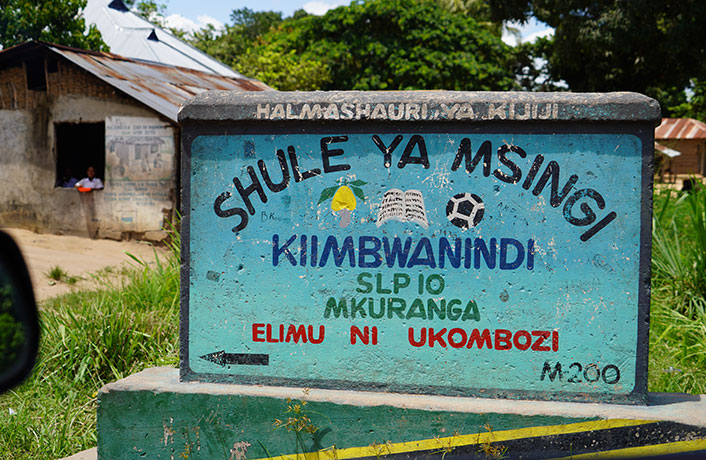 HALMASHAURI YA KIJIJI
SHULE YA MSINGI
KIIMBWANINDI
SLP 10
MKURANGA
ELIMU NI UKOMBOZI
M200